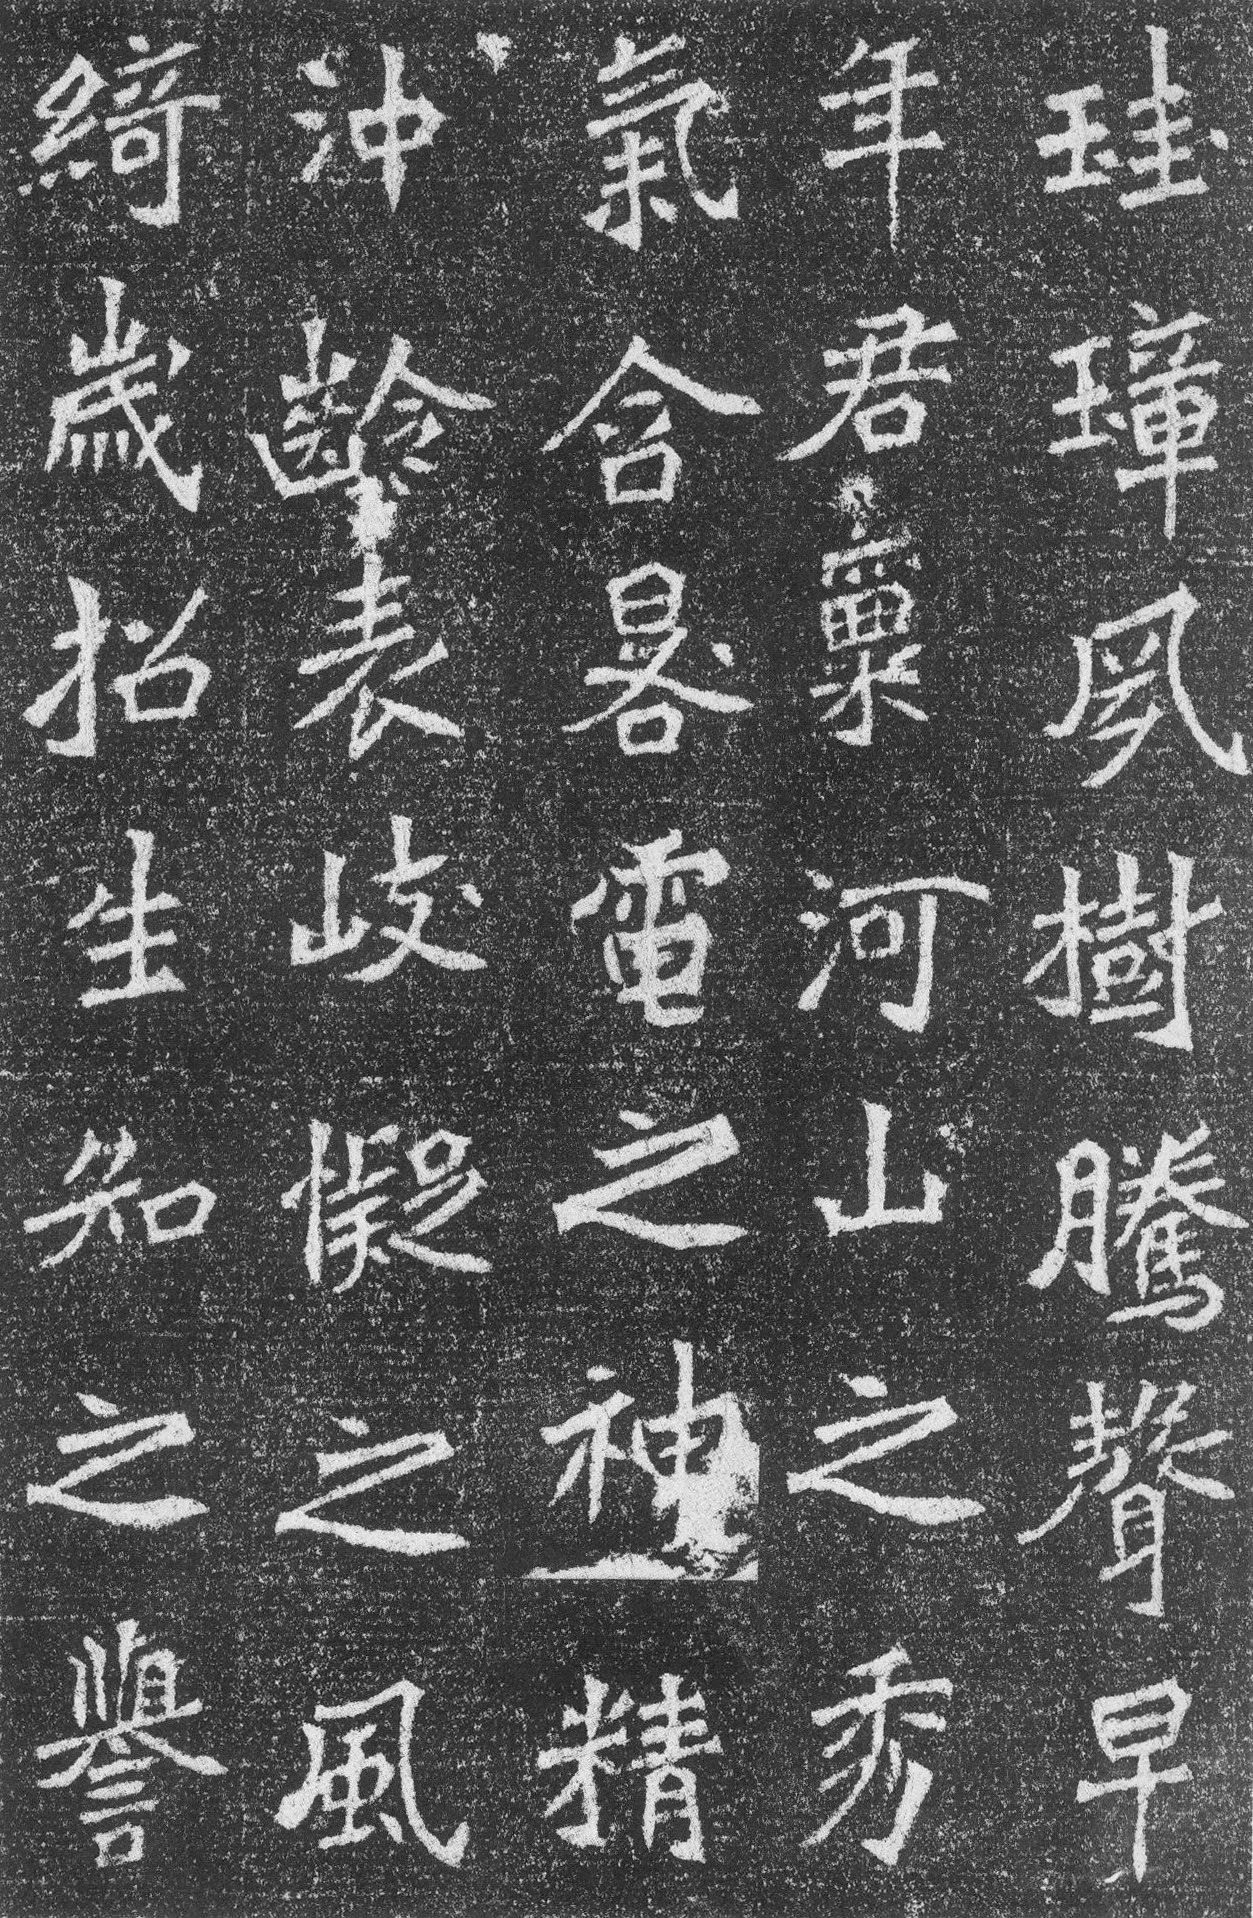 珪璋夙樹騰聲早
年君稟河山之秀
氣含晷電之神精
沖齡表岐㠜之風
綺歲招生知之譽